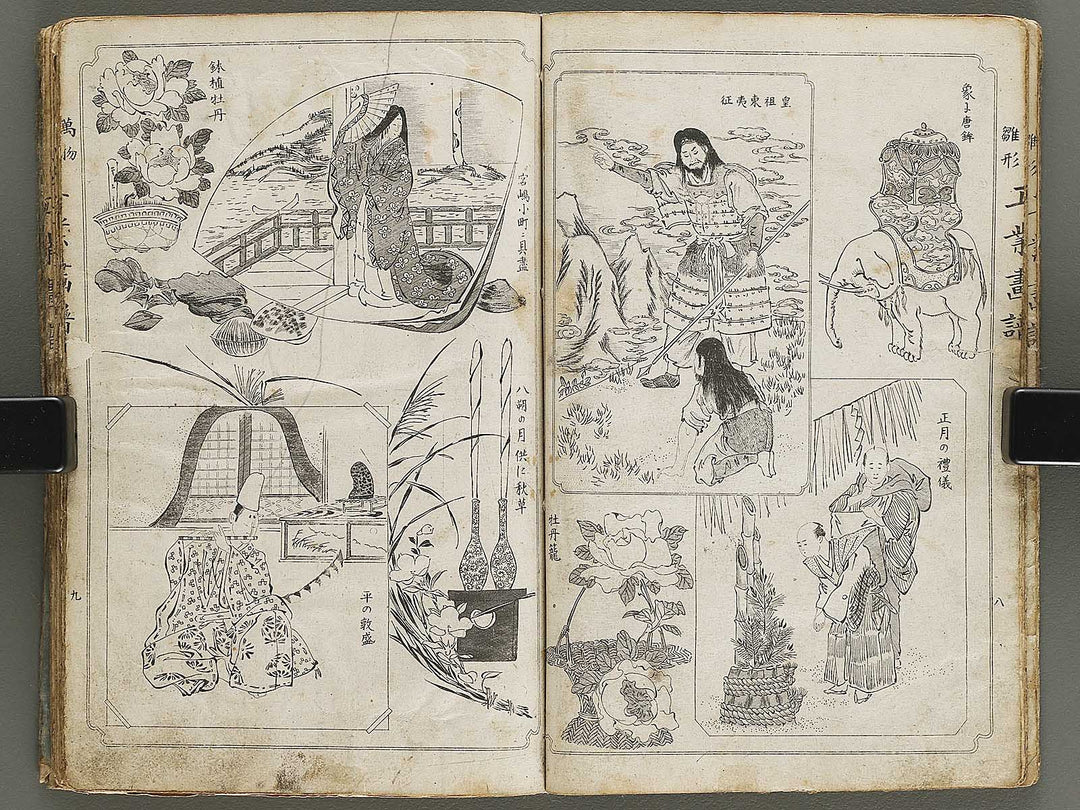 象に唐鉾
皇祖東夷征
正月の禮儀
牡丹籠
八
雛形
畫譜
鉢植牡丹
宮嶋小町ニ貝盡
八朔の月供に秋草
平の敦盛
九
萬物